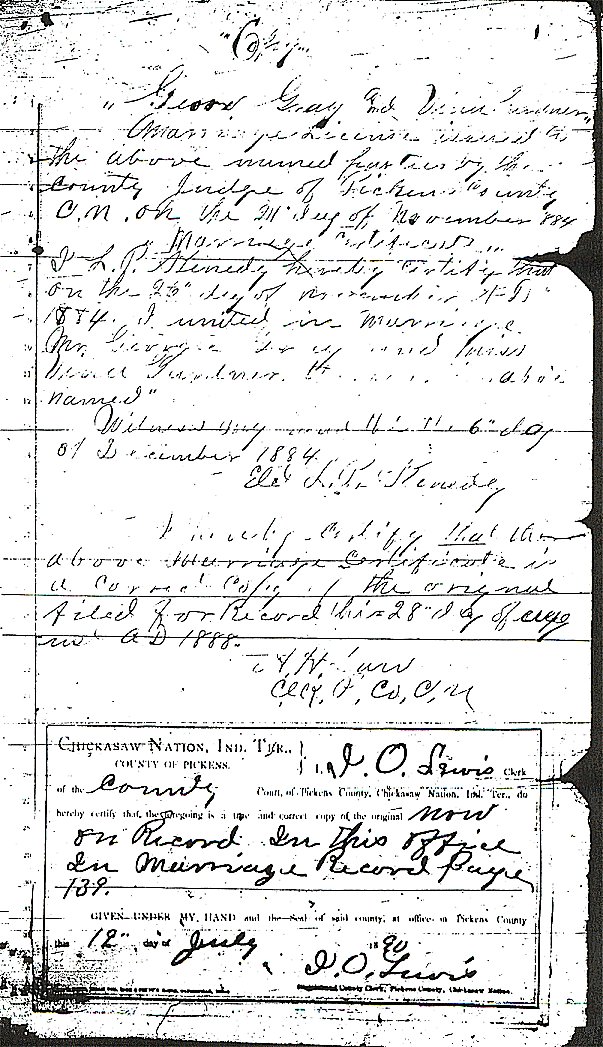 "Copy"
"George Gray and Vina Gardner"
Marriage License issued to
the above named parties by the
County Judge of Pickens County
C.N. on the 24" day of November 1884
"Marriage Certificate"
I L. P. Kenedy hereby Certify that
on the 25" day of November A D
1884. I united in Marriage
Mr. George Gray and Miss
Gardner. above
named"
Witness my hand this the 6" day
of December 1884
Kenedy
I hereby Certify that the
above Marriage Certificate is
a Correct Copy of the original
filed for Record this 28" day of Aug
ust AD 1888.
Clk. P. Co, C, N
CHICKASAW NATION, IND. TER.,
COUNTY OF PICKENS.
I, J. O. Lewis Clerk
of the County Court, of Pickens County, Chickasaw Nation, Ind. Ter., do
hereby certify that the foregoing is a true and correct copy of the original now
on Record In this office
In Marriage Record Page
139.
GIVEN UNDER MY HAND and the Seal of said county, at office in Pickens County
this 12" day of July 1890
J. O. Lewis
County Clerk, Pickens County, Chickasaw Nation.